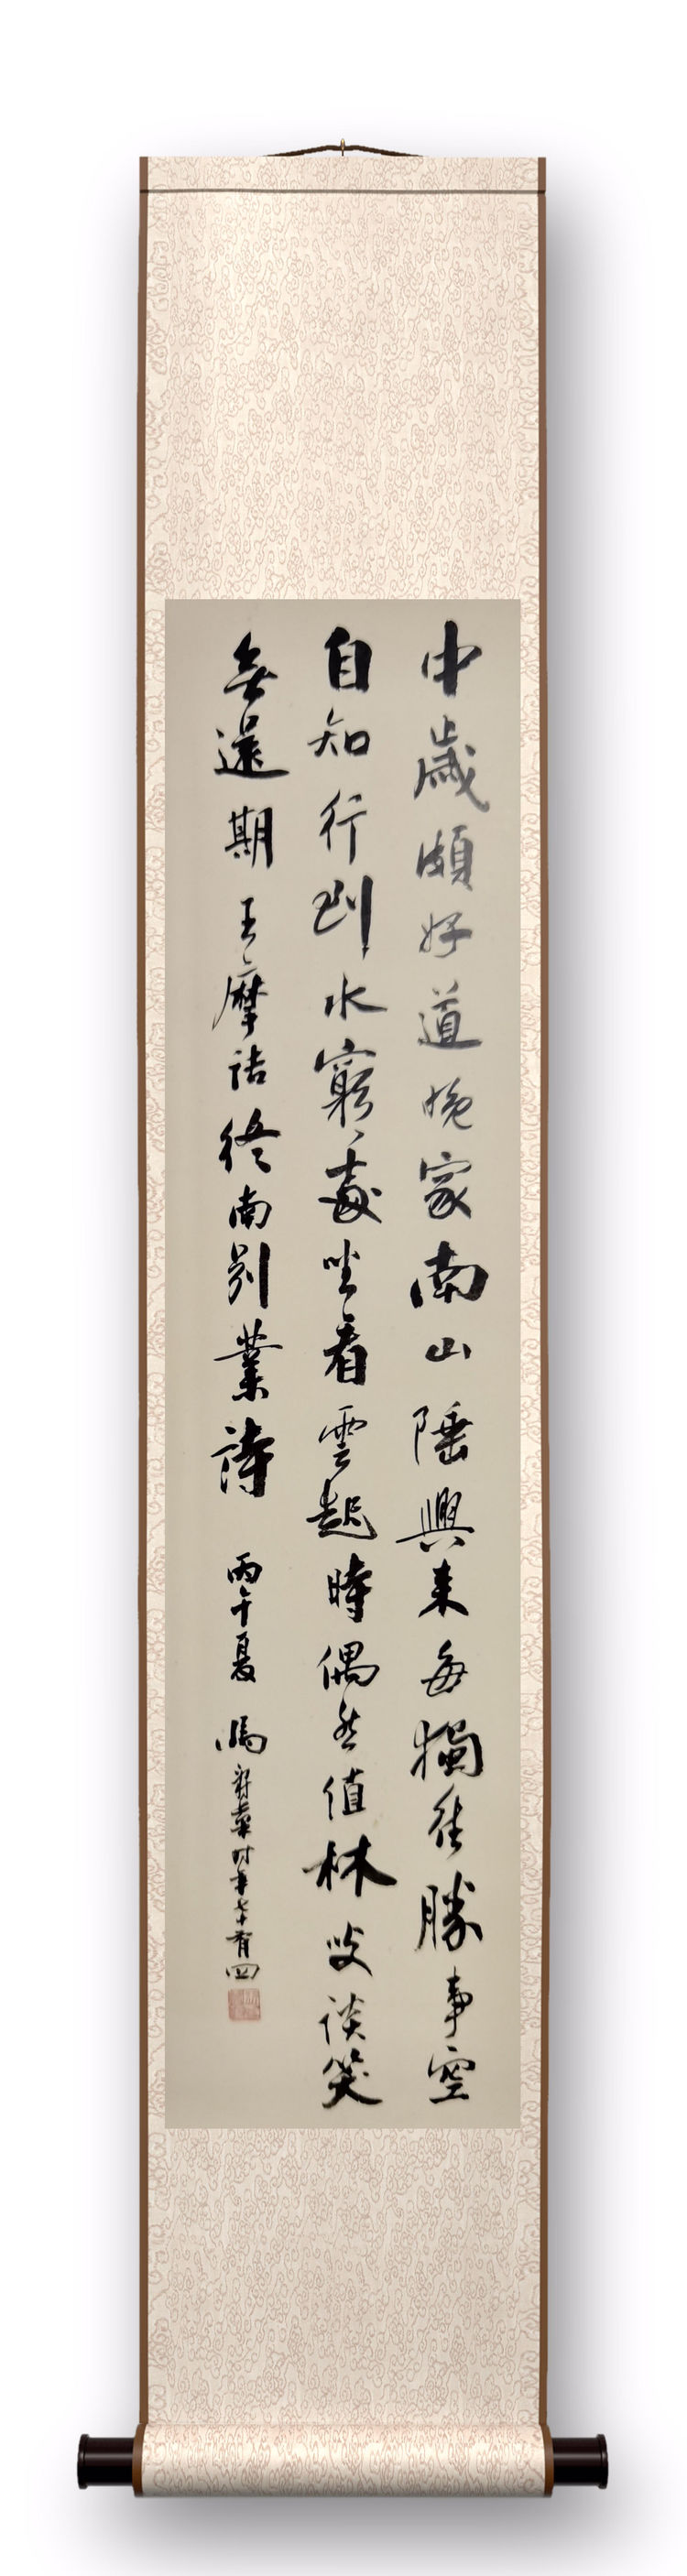 中歲頗好道晚家南山陲興來每獨往勝事空
自知行到水窮處坐看雲起時偶然值林叟談笑
無還期 王摩詰終南別業詩 丙午夏 時年七十有四